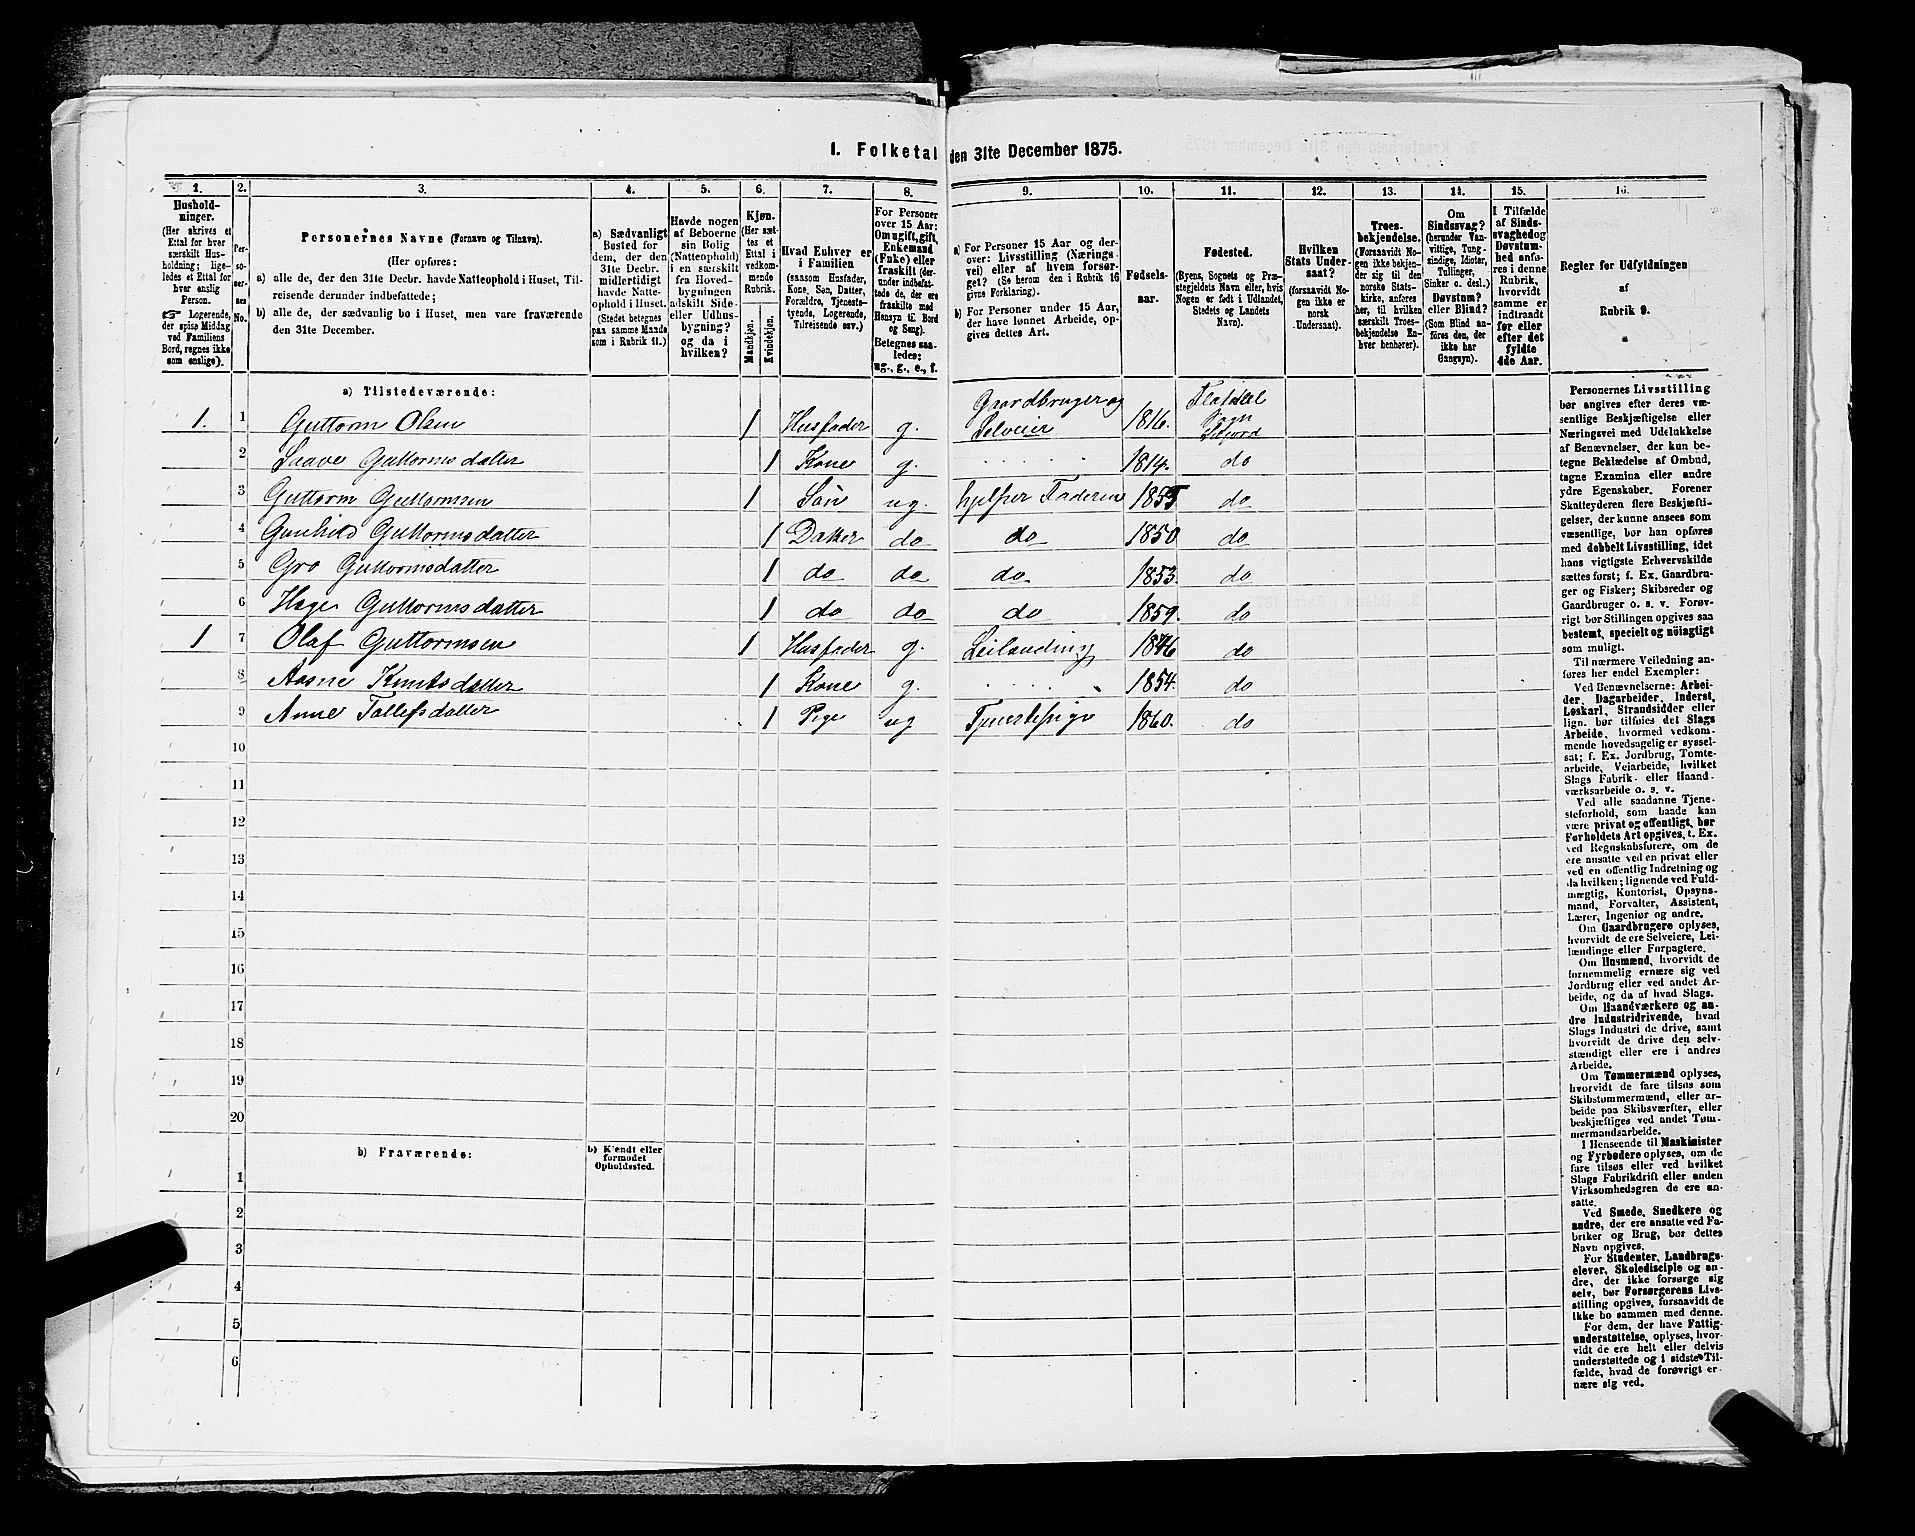 1. Folketal den 31te December 1875.
1. 2. 3. 4. 5. 6. 7. 8. 9. 10. 11. 12. 13. 14. 15. 16.
Husholdninger.
(Her skrives et
Ettal for hver
særskilt Husholdning; ligeledes et Ettal for
hver enslig
Person.
☞ Logerende,
der spise Middag
ved Familiens
Bord, regnes ikke
som enslige).
Personernes No.
Personernes Navne (Fornavn og Tilnavn).
(Her opføres:
a) alle de, der den 31te Decbr. havde Natteophold i Huset, Tilreisende derunder indbefattede;
b) alle de, der sædvanlig bo i Huset, men vare fraværende
den 31te December.
a) Sædvanligt
Bosted for
dem, der den
31te Decbr.
midlertidigt
havde Natteophold i Huset.
(Stedet betegnes
paa samme Maade
som i Rubrik 11.)
Havde nogen
af Beboerne
sin Bolig
(Natteophold)
i en særskilt
fra Hovedbygningen
adskilt Side-
eller Udhusbygning?
og da i
hvilken?
Kjøn.
(Her sættes et
Ettal i
vedkommende
Rubrik.
Mandkjøn.
Kvindekjøn.
Hvad Enhver er
i Familien
(saasom Husfader,
Kone, Søn, Datter,
Forældre, Tjenestetyende, Logerende,
Tilreisende osv.)
For Personer
over 15 Aar:
Om ugift, gift,
Enkemand
(Enke) eller
fraskilt (derunder indbefattede de, der ere
fraskilte med
Hensyn til Bord
og Seng).
Betegnes saaledes:
ug., g., e., f.
a) For Personer 15 Aar og derover: Livsstilling (Næringsvei) eller af hvem forsørget? (Se herom den i Rubrik 16
givne Forklaring).
b) For Personer under 15 Aar,
der have lønnet Arbeide, opgives dettes Art.
Fødselsaar.
Fødested.
(Byens, Sognets og Præstegjeldets Navn eller, hvis
Nogen er født i Udlandet,
Stedets og Landets
Navn).
Hvilken
Stats Undersaat?
(forsaavidt Nogen ikke er
norsk
Undersaat).
Troesbekjendelse.
(Forsaavidt Nogen ikke bekjender sig til den
norske Statskirke, anføres
her, til hvilken
særskilt Troesbekjendelse Enhver henhører).
Om
Sindssvag?
(herunder Vanvittige, Tungsindige, Idioter,
Tullinger,
Sinker o. desl.)
Døvstum?
eller Blind?
(Som Blind anføres den, der
ikke har
Gangsyn).
I Tilfælde
af Sindssvaghed og
Døvstumhed anføres i denne
Rubrik,
hvorvidt
samme er
indtraadt
før eller
efter det
fyldte
4de Aar.
Regler for Udfyldningen
af
Rubrik 9.
a) Tilstedeværende:
1. 1 Guttorm Olsen 1 Husfader g. Gaardbruger og Selveier 1816. Flatdal Sogn
2 Guttormsdatter 1 Kone g. 1814. do
3 Guttorm Guttormsen 1 Søn ug. hjelper Faderen 1855 do
4 Gunhild Guttormsdatter 1 Datter do do 1850 do
5 Gro Guttormsdatter 1 do do do. 1853. do
6 Hæge Guttormsdatter 1 do do do 1859. do
1 7 Olaf Guttormsen 1 Husfader g. Leilænding 1846 do
8 Aasne Knutsdatter 1 Kone g. 1854. do
9 Anne Tollefsdatter 1 Pige ug Tjenestepige 1860. do
10
11
12
13
14
15
16
17
18
19
20
b) Fraværende:
b) Kjendt eller
formodet
Opholdssted.
1
2
3
4
5
6
Personernes Livsstilling
bør angives efter deres væsentlige Beskjæftigelse eller
Næringsvei med Udelukkelse
af Benævnelser, der kun betegne Beklædelse af Ombud,
tagne Examina eller andre
ydre Egenskaber. Forener
Skatteyderen flere Beskjæftigelser, der kunne ansees som
væsentlige, bør han opføres
med dobbelt Livsstilling, idet
hans vigtigste Erhvervskilde
sættes først; f. Ex. Gaardbruger og Fisker; Skibsreder og
Gaardbruger o. s. v. Forøvrigt bør Stillingen opgives saa
bestemt, specielt og nöiagtigt
som muligt.
Til nærmere Veiledning anføres her endel Exempler:
Ved Benævnelserne: Arbeider, Dagarbeider, Inderst,
Løskarl, Strandsidder eller
lign. bør tilføies det Slags
Arbeide, hvormed vedkommende hovedsagelig er sysselsat; f. Ex. Jordbrug, Tomtearbeide, Veiarbeide, hvilket
Slags Fabrik- eller Haandværksarbeide o. s. v.
Ved alle saadanne Tjenesteforhold, som baade kan
være privat og offentligt, bør
Forholdets Art opgives, t. Ex.
ved Regnskabsførere, om de
ere ansatte ved en privat eller
ved en offentlig Indretning og
da hvilken; lignende ved Fuldmægtig, Kontorist, Opsynsmand, Forvalter, Assistent,
Lærer, Ingeniør og andre.
Om Gaardbrugere oplyses,
hvorvidt de ere Selveiere, Leilændinge eller Forpagtere.
Om Husmænd, hvorvidt de
fornemmelig ernære sig ved
Jordbrug eller ved andet Arbeide, og da af hvad Slags.
Om Haandværkere og andre Industridrivende, hvad
Slags Industri de drive, samt
hvorvidt de drive den selvstændigt eller ere i andres
Arbeide.
Om Tømmermænd oplyses,
hvorvidt de fare tilsøs som
Skibstømmermænd, eller arbeide paa Skibsværfter, eller
beskjæftiges ved andet Tømmermandsarbeide.
I Henseende til Maskinister
og Fyrbødere oplyses, om de
fare tilsøs eller ved hvilket
Slags Fabrikdrift eller anden
Virksomhedsgren de ere ansatte.
Ved Smede, Snedkere og
andre, der ere ansatte ved Fabriker og Brug, bør dettes
Navn opgives.
For Studenter, Landbrugselever, Skoledisciple og andre, der ikke forsørge sig
selv, bør Forsørgerens Livsstilling opgives, forsaavidt de
ikke bo sammen med denne.
For dem, der have Fattigunderstøttelse, oplyses, hvorvidt de ere helt eller delvis
understøttede og i sidste Tilfælde, hvad de forøvrigt ernære sig ved.